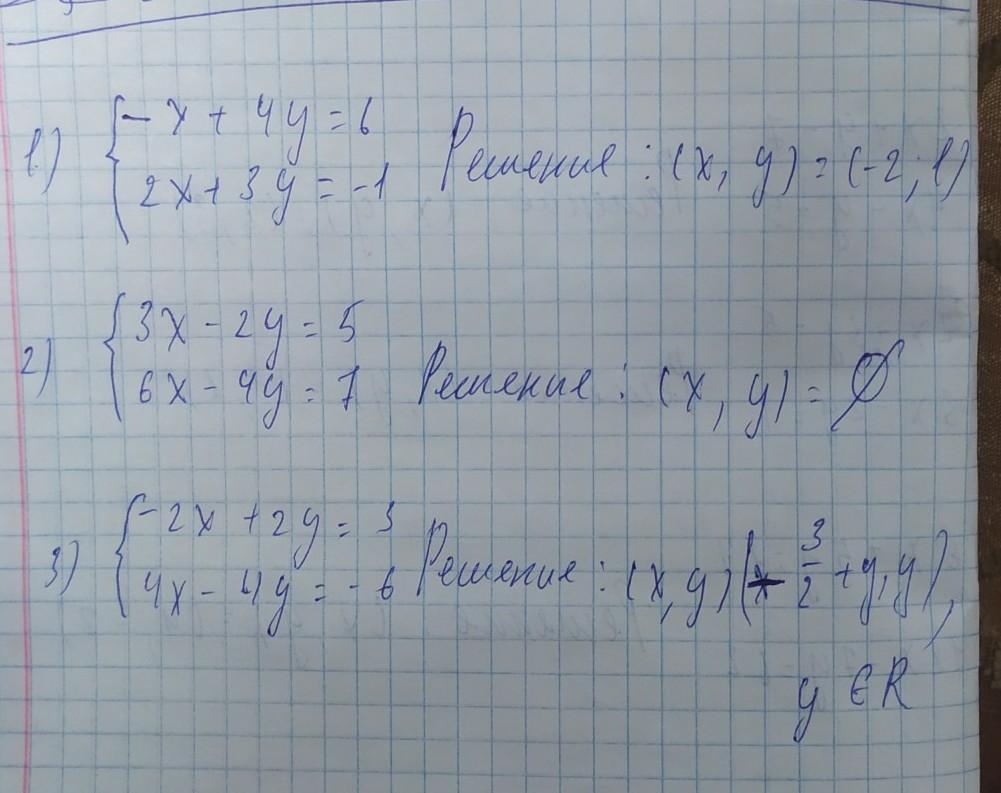 1) { - x + 4y = 6
2x + 3y = -1 Решение : (x, y) = (-2; 1)
2) { 3x - 2y = 5
6x - 4y = 7 Решение : (x, y) = ∅
3) { -2x + 2y = 3
4x - 4y = -6 Решение : (x, y) (- 3/2 + y, y),
y ∈ R